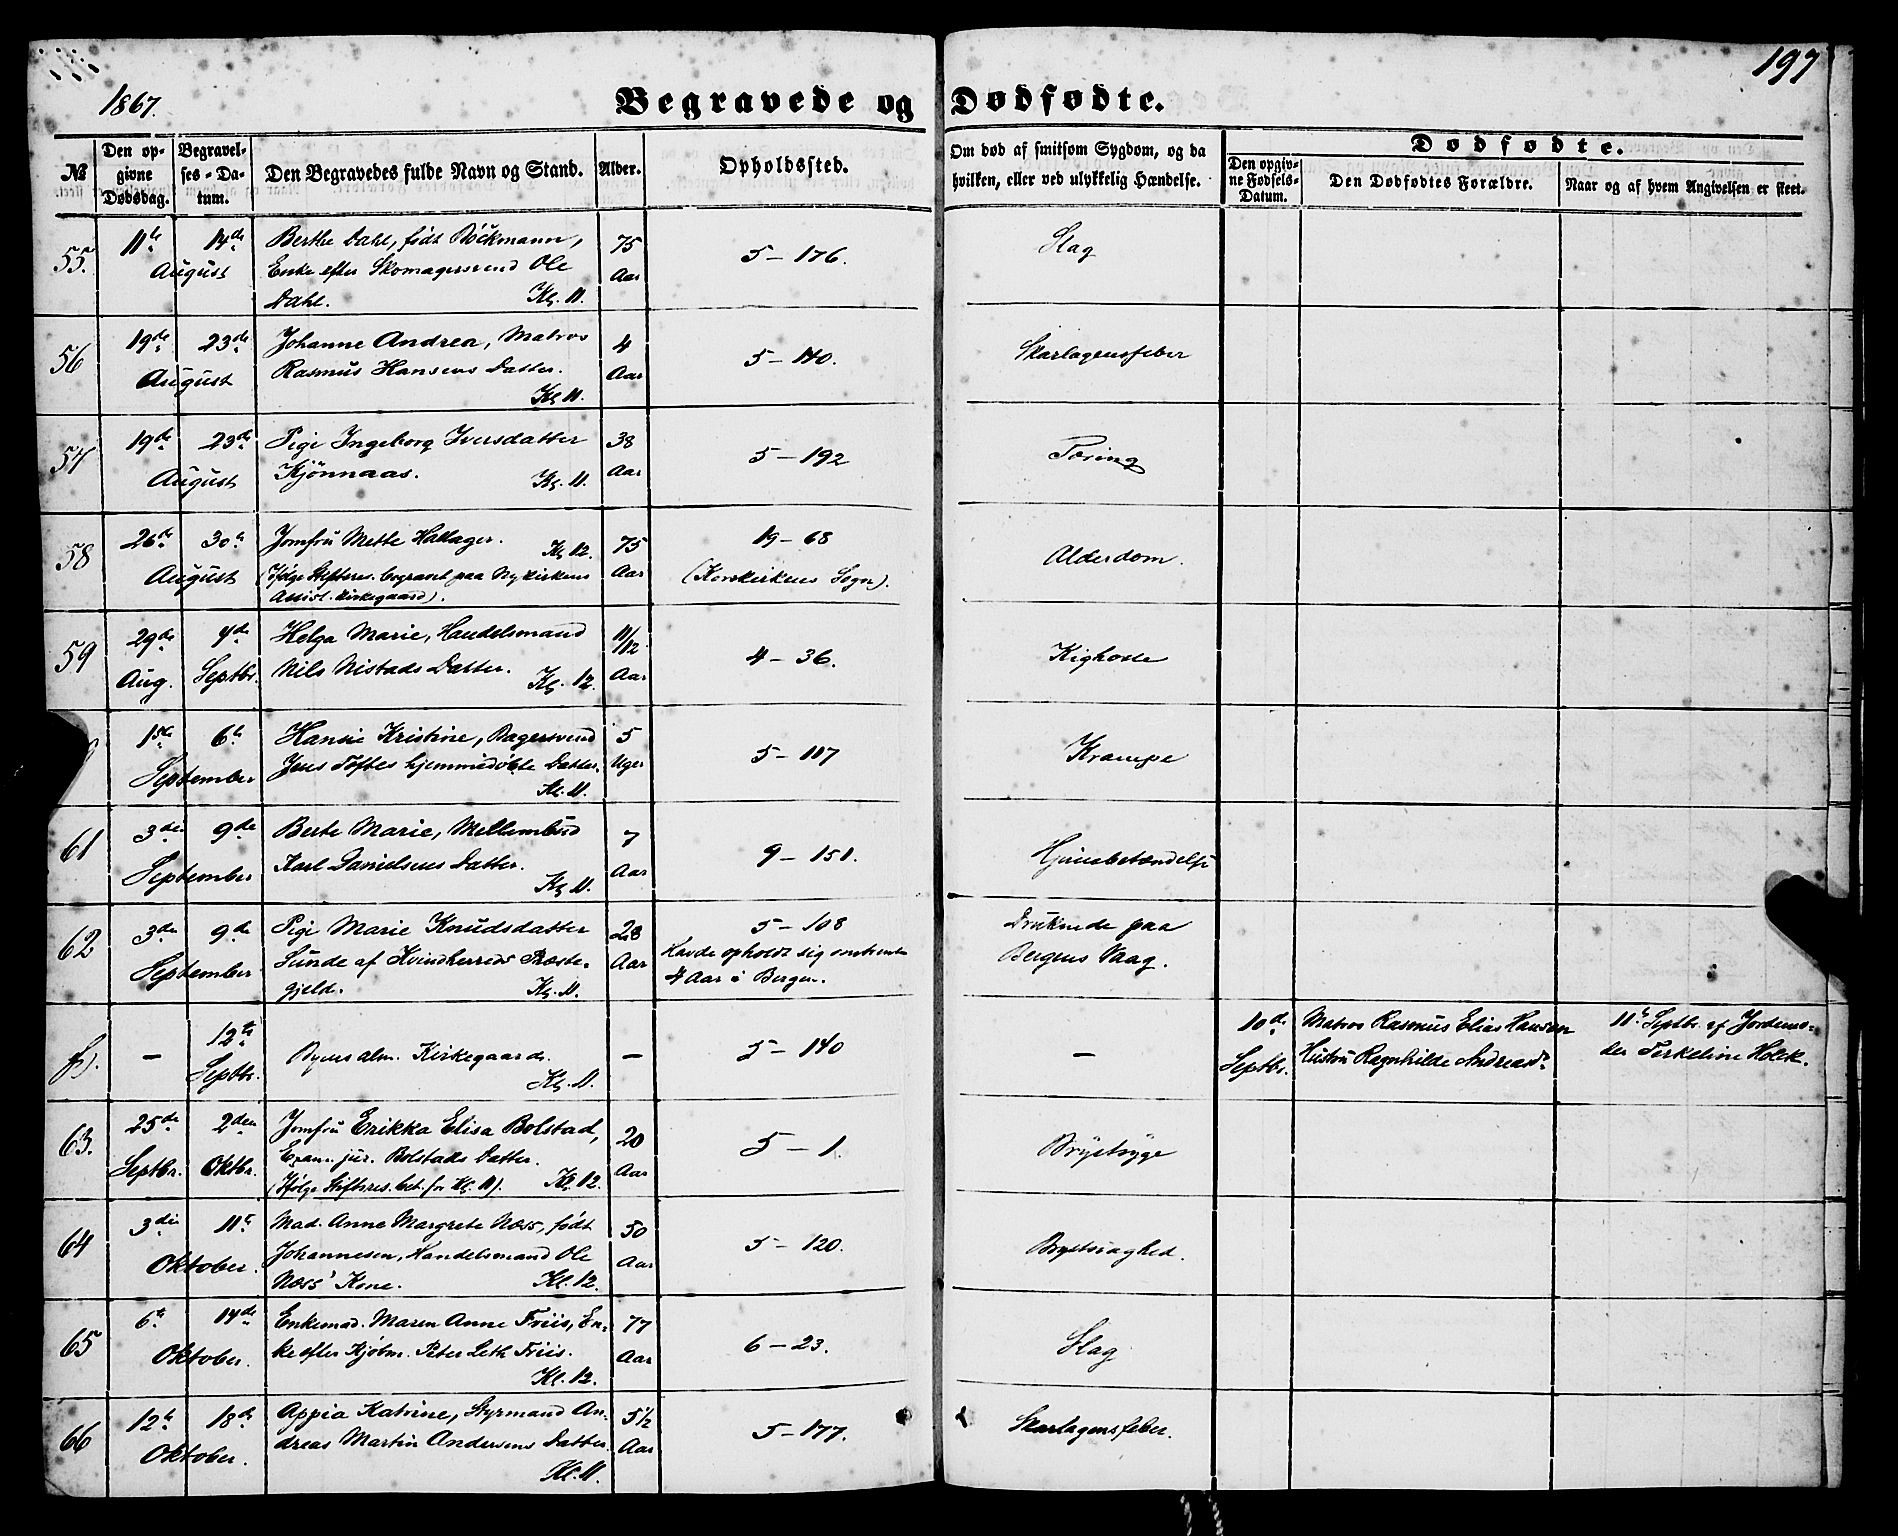 197
1867.
Begravede og Dødfødte.
№
Den opgivne Dødsdag.
Begravelses-Datum.
Den Begravedes fulde Navn og Stand.
Alder.
Opholdssted.
Om død af smitsom Sygdom, og da hvilken, eller ved ulykkelig Hændelse.
Dødfødte.
Den opgivne Fødsels-Datum.
Den Dødfødtes Forældre.
Naar og af hvem Angivelsen er skeet.
55. 11te 14de Berthe Dahl, født Böckmann, 75 5 - 176. Slag
August Enke efter Skomagersvend Ole Aar
Dahl. Kl. 11.
56 19de 23de Johanne Andrea, Matros 4 5 - 140. Skarlagensfeber
August Rasmus Hansens Datter. Aar
Kl. 11.
57 19de 23de Pige Ingeborg Iversdatter 38 5 - 192 Tæring
August Kjönnaas. Kl. 11. Aar
58 26de 30te Jomfru Mette Hallager. Kl. 12. 75 19 - 68 Alderdom.
August (Ifølge Stiftsres. begravet paa Nykirkens Aar (Korskirkens Sogn).
Assist. Kirkegaard).
59 29de 4de Helga Marie, Handelsmand 11/12 4 - 36. Kighoste
Aug. Septbr. Nils Nistads Datter. Kl. 12. Aar
1ste 6te Hansie Kristine, Bagersvend 5 5 - 117 Krampe
September Jens Toftes hjemmedøbte Datter. Uger
Kl. 11.
61 3die 9de Berte Marie, 7 9 - 151. Hjernebetændelse
September Karl Danielsens Datter. Aar
Kl. 11.
62 3die 9de Pige Marie Knudsdatter 28 5 - 108 Druknede paa
September Sunde af Kvindherreds Præste- Aar Havde opholdt sig omtrent Bergens Vaag.
gjeld. Kl. 11. 4 Aar i Bergen.
f). — 12te Byens alm. Kirkegaard. — 5 - 140 — 10de Matros Rasmus Elias Hansen 11te Septbr. af Jordemo-
Septbr. Kl. 11. Septbr. Hustru Ragnhilde Andreasdr. der Terkeline Holck.
63. 25de 2den Jomfru Erikka Elisa Bolstad, 20 5 - 1. Brystsyge
Septbr. Oktbr. Exam. jur. Bolstads Datter. Aar
(Ifølge Stiftsres. bet. for Kl. 11). Kl. 12.
64 3die 11te Mad. Anne Margrete Næss, født 50 5 - 120. Brystsvaghed.
Oktober. Johannesen, Handelsmand Ole Aar
Næss' Kone. Kl. 12.
65 6te 14de Enkemad. Maren Anne Friis, En- 77 6 - 23. Slag
Oktober. ke efter Kjøbm. Peter Leth Friis. Aar
Kl. 12.
66 12te 18de Appia Katrine, Styrmand An- 5 1/2 5 - 177. Skarlagensfeber.
Oktober. dreas Martin Andersens Datter. Aar
Kl. 11.